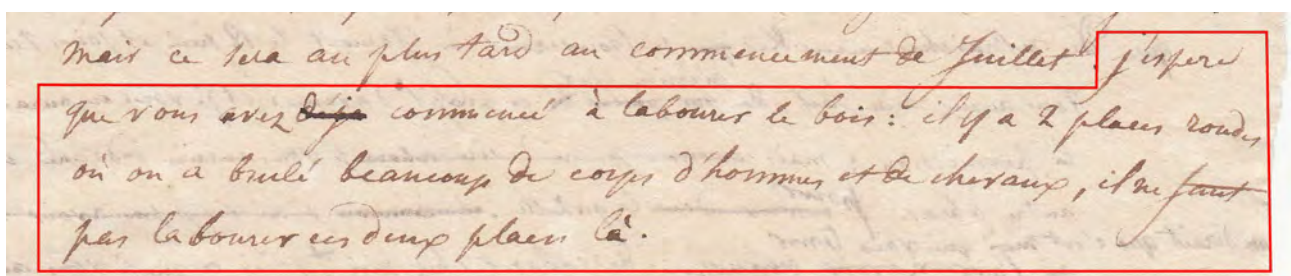 mais ce sera au plus tard au commencement de Juillet. j'espere
que vous avez deja commencé à labourer le bois : il y a 2 places rondes
où on a brulé beaucoup de corps d'hommes et de chevaux, il ne faut
pas labourer ces deux places là.